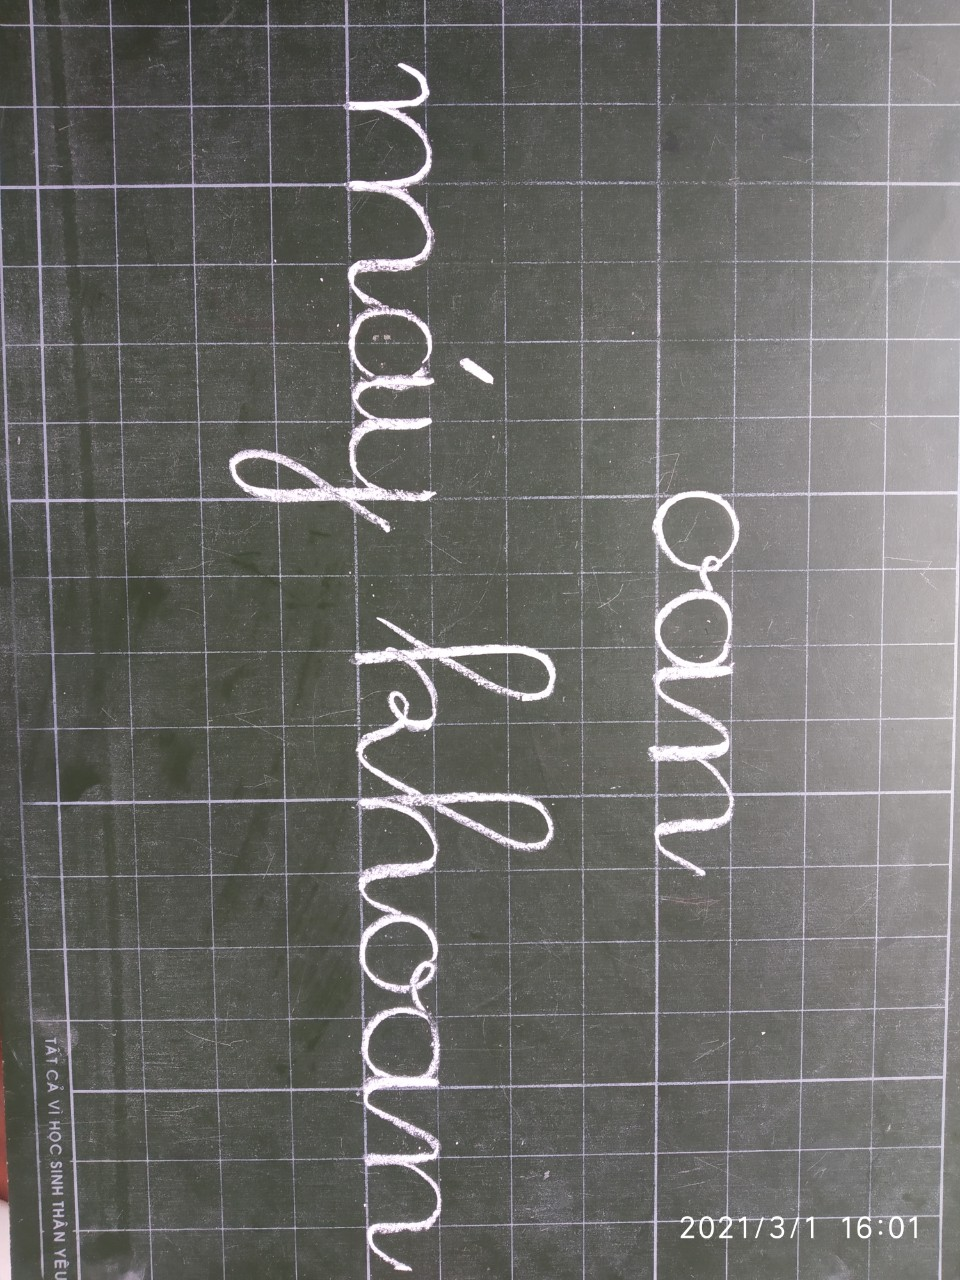 oan
máy khoan
TẤT CẢ VÌ HỌC SINH THÂN YÊU
2021/3/1 16:01